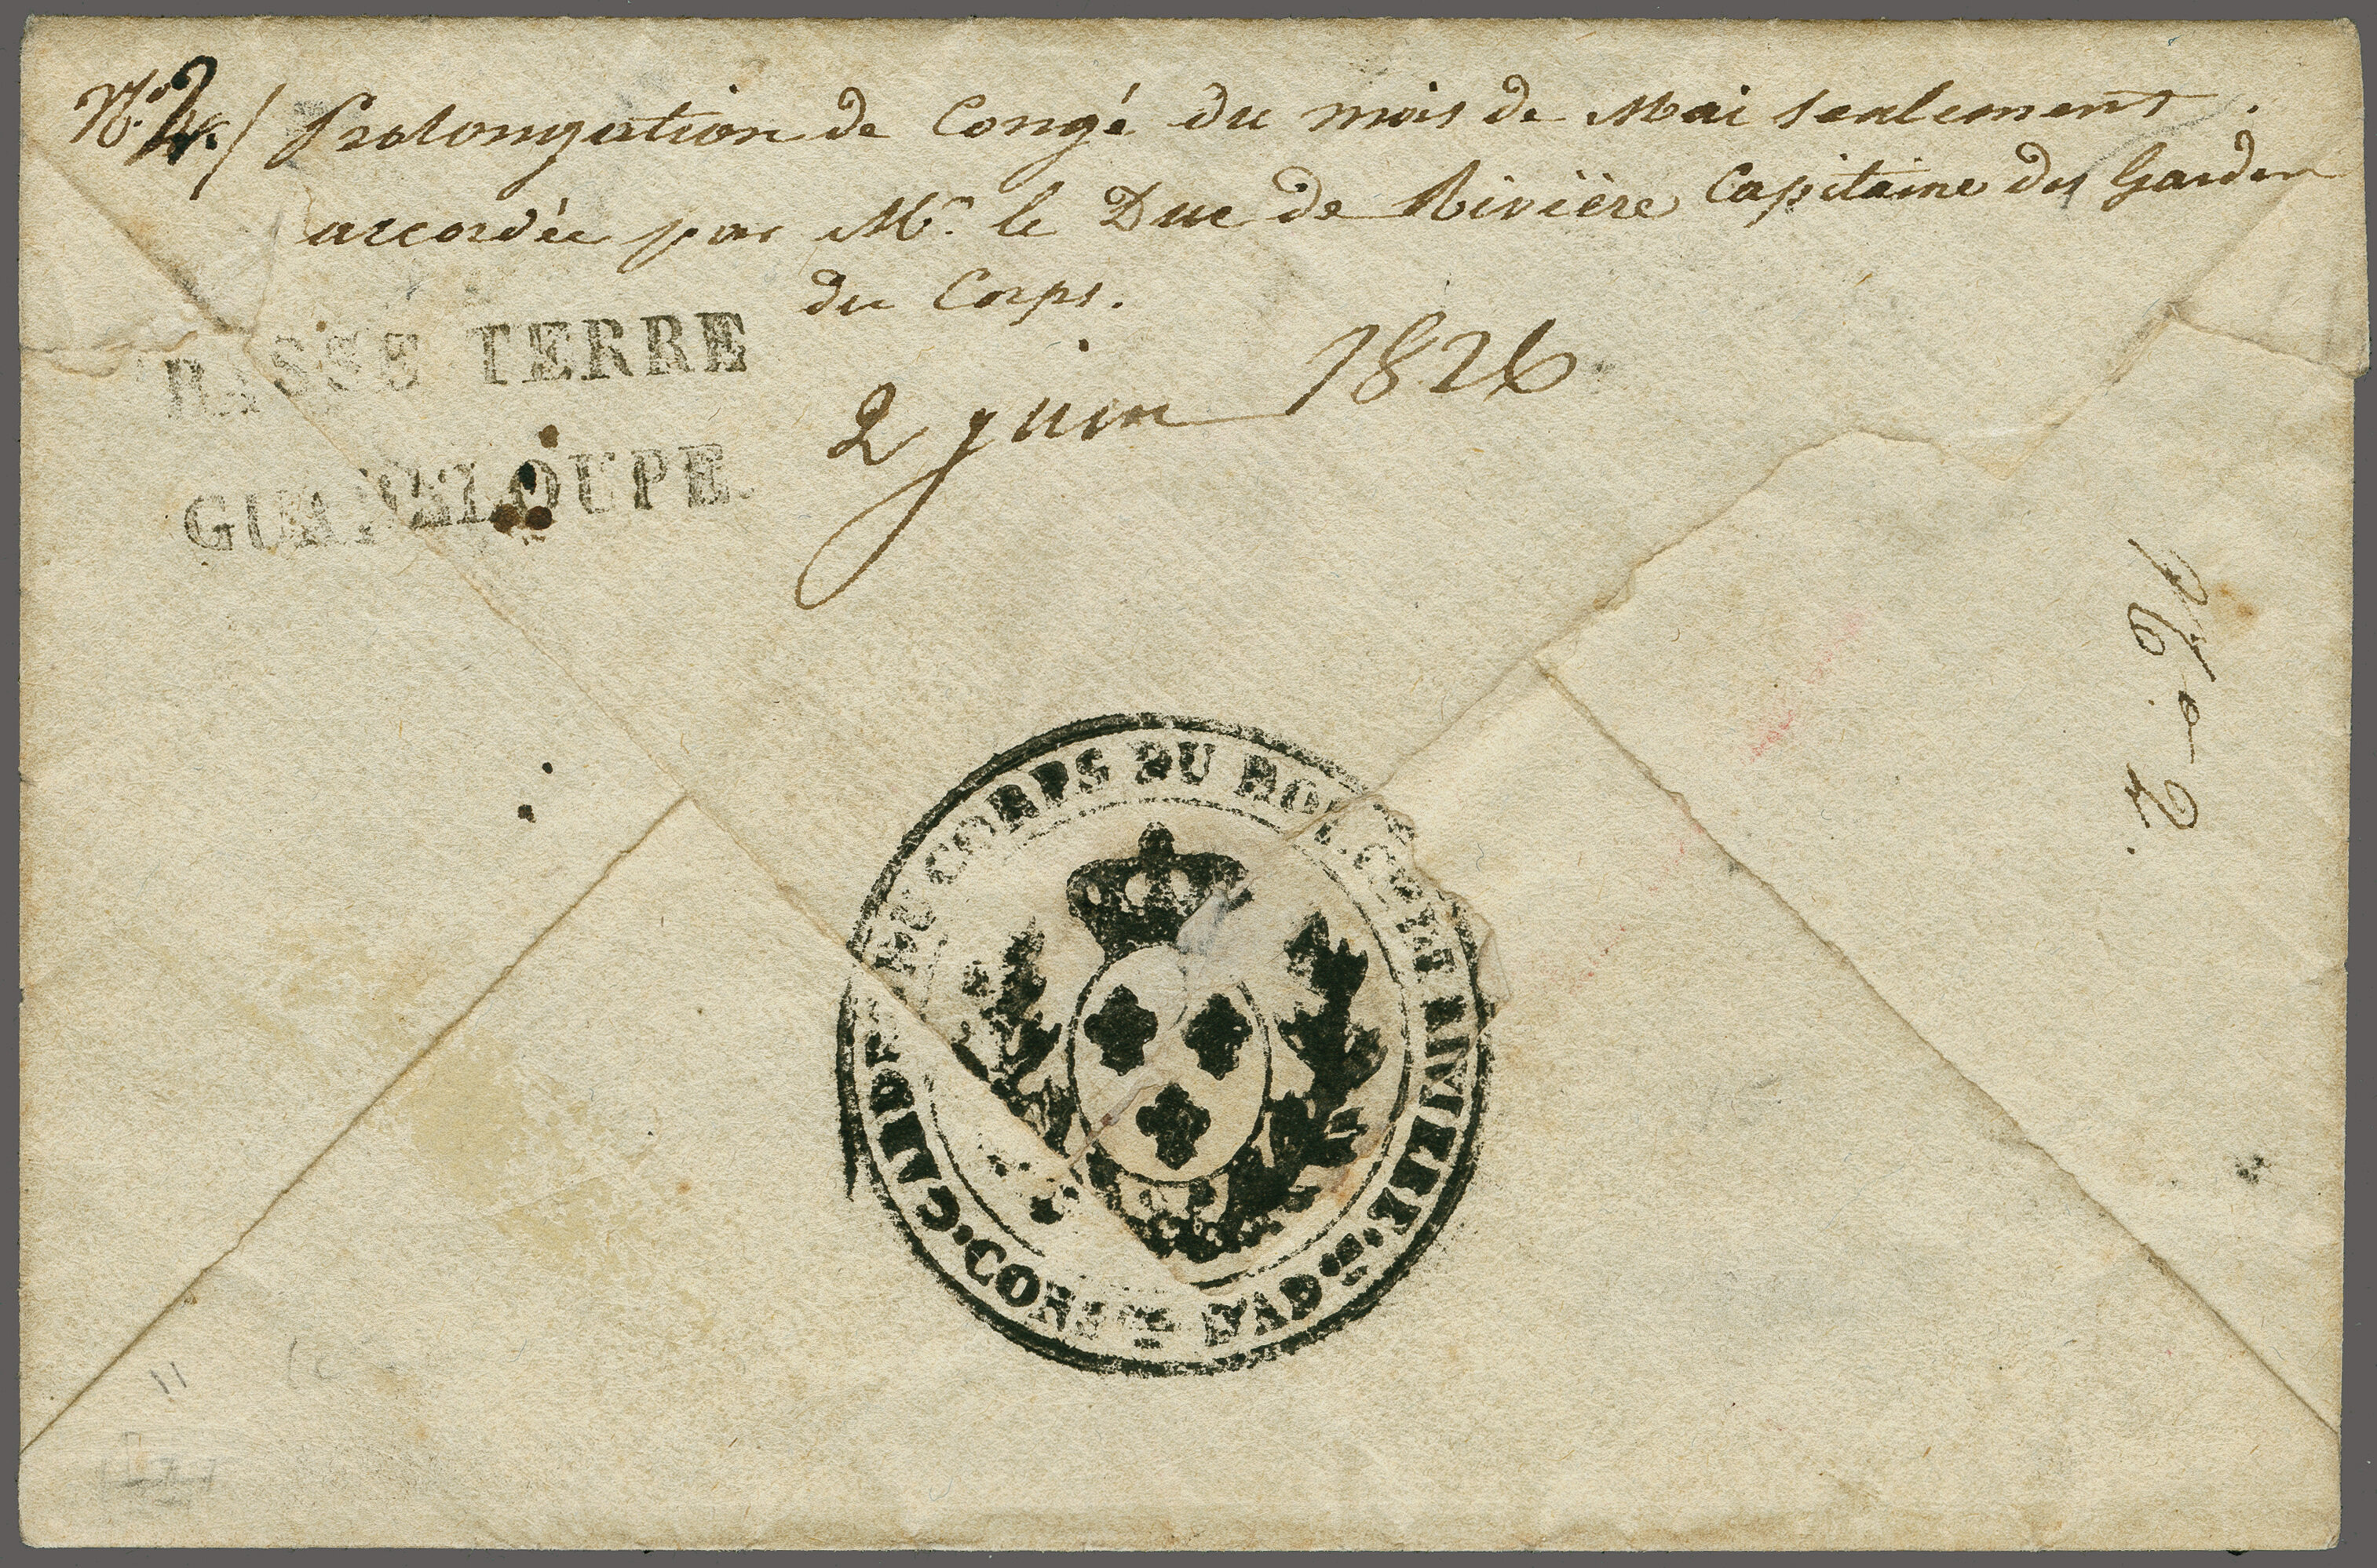 N.º 2. / Prolongation de Congé du mois de Mai seulement.
accordée par Mr. le Duc de Rivière Capitaine des Gardes
du Corps.
BASSE TERRE
GUADELOUPE.
2 juin 1826
Nº. 2.
DU CORPS DU ROI